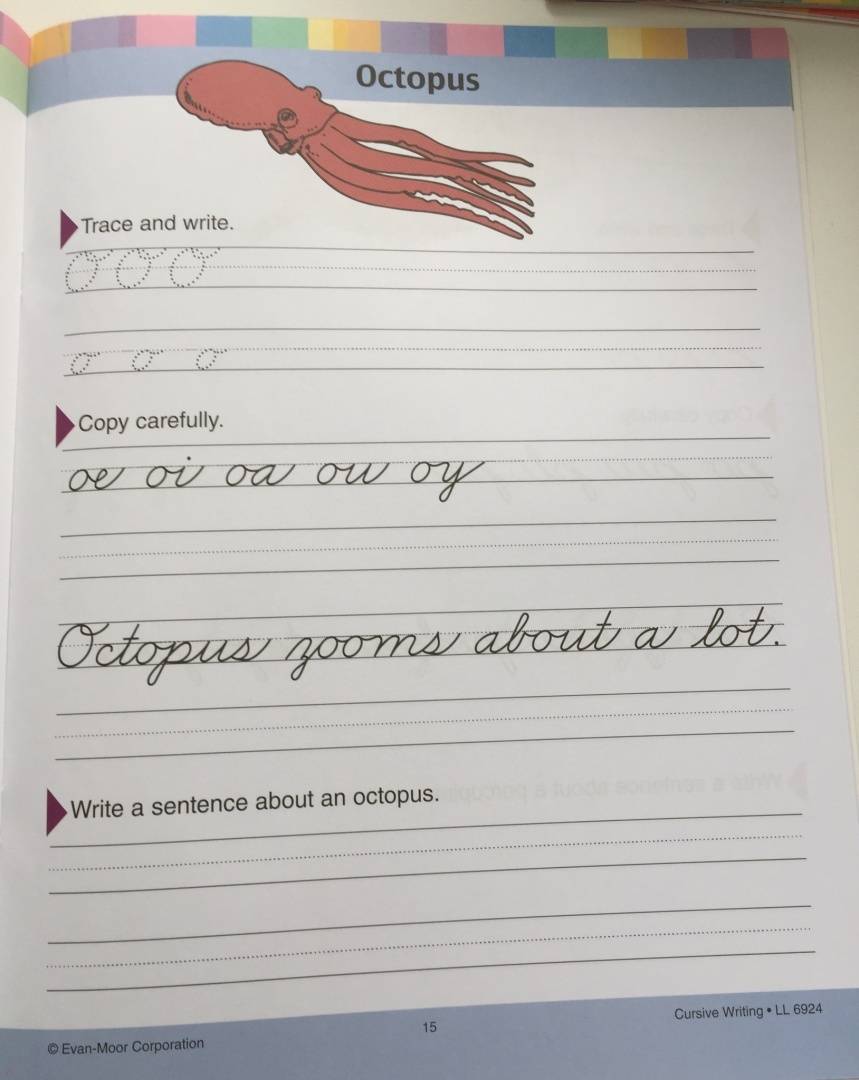 Octopus
Trace and write.
O O O
o o o
Copy carefully.
oe oi oa ow oy
Octopus zooms about a lot.
Write a sentence about an octopus.
15
Cursive Writing • LL 6924
© Evan-Moor Corporation